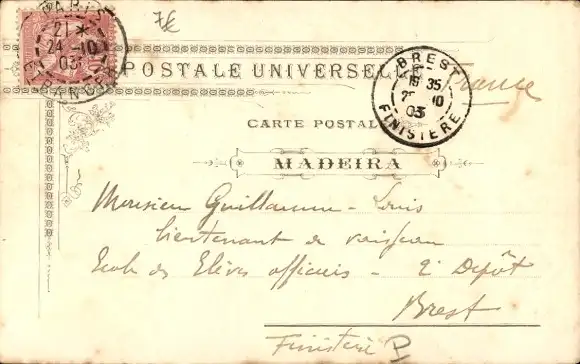 7€
PARIS
21 *
24 - 10
03
ETRANGER
POSTALE UNIVERSELLE
France
BREST
19 35
25 10
03
FINISTERE
CARTE POSTALE
MADEIRA
Monsieur Guillaume - Louis
lieutenant de vaisseau
Ecole des Elèves officiers - 2e Depôt
Brest
Finistère